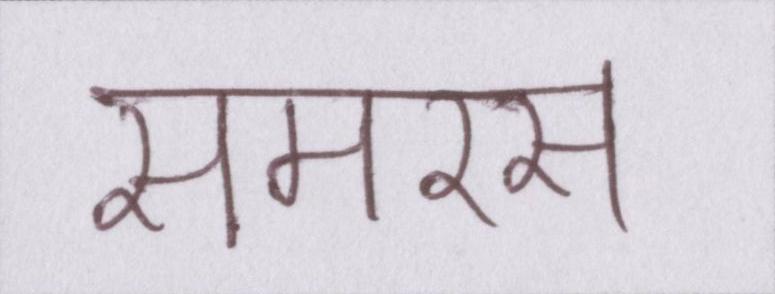 समरस